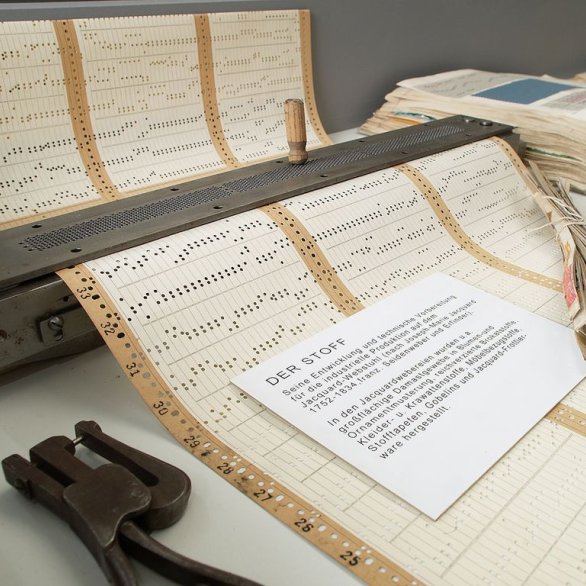 DER STOFF
Seine Entwicklung und technische Vorbereitung
für die industrielle Produktion auf dem
Jacquard-Webstuhl (nach Joseph-Marie Jacquard
1752-1834,franz. Seidenweber und Erfinder).
In den Jacquardwebereien wurden u.a.
großflächige Damastgewebe in Blumen-und
Ornamentmusterung, reichverzierte Brokatstoffe,
Kleider- u. Krawattenstoffe, Möbelbezugstoffe,
Stofftapeten, Gobelins und Jacquard-Frottier-
ware hergestellt.
33
32
31
30
29
28
27
26
25